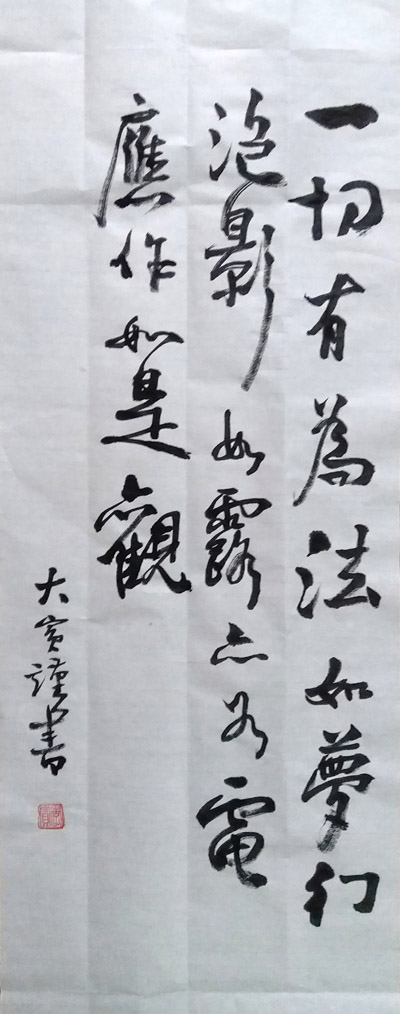 一切有為法如夢幻
泡影如露亦如電
應作如是觀
大謹書